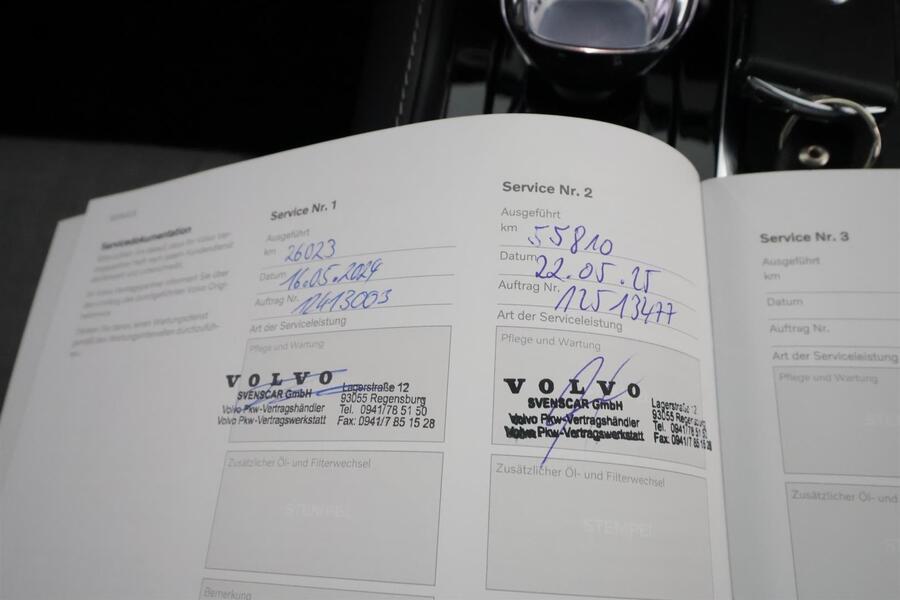 Servicedokumentation
Service Nr. 1
Ausgeführt
km 26023
Datum 16.05.2024
Auftrag Nr. 12413003
Art der Serviceleistung
Pflege und Wartung
VOLVO
SVENSCAR GmbH
Volvo Pkw-Vertragshändler
Volvo Pkw-Vertragswerkstatt
Lagerstraße 12
93055 Regensburg
Tel. 0941/78 51 50
Fax: 0941/7 85 15 28
Zusätzlicher Öl- und Filterwechsel
STEMPEL
Bemerkung
Service Nr. 2
Ausgeführt
km 55810
Datum 22.05.25
Auftrag Nr. 12513477
Art der Serviceleistung
Pflege und Wartung
VOLVO
SVENSCAR GmbH
Volvo Pkw-Vertragshändler
Volvo Pkw-Vertragswerkstatt
Lagerstraße 12
93055 Regensburg
Tel. 0941/78 51 50
Fax: 0941/7 85 15 28
Zusätzlicher Öl- und Filterwechsel
STEMPEL
Service Nr. 3
Ausgeführt
km
Datum
Auftrag Nr.
Art der Serviceleistung
Pflege und Wartung
Zusätzlicher Öl- und